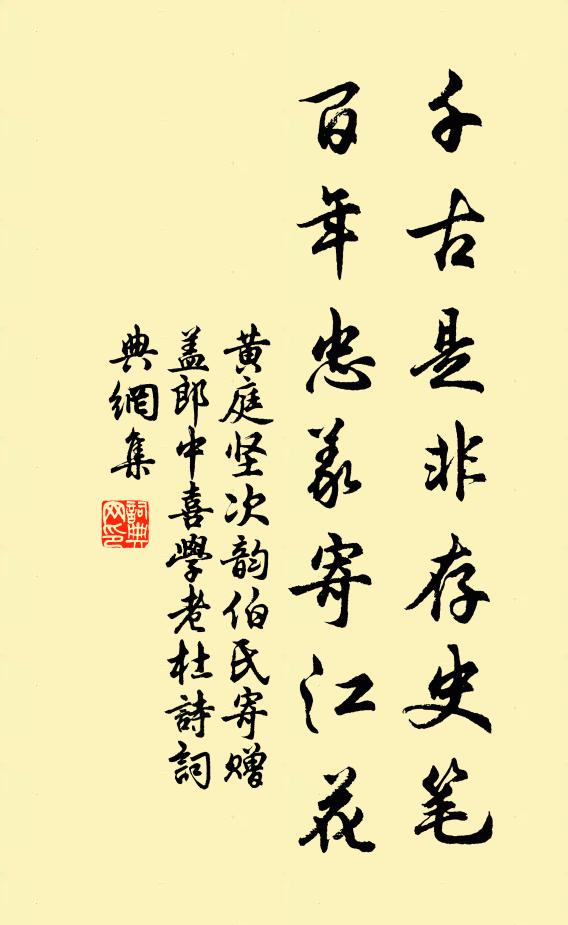 千古是非存史笔
百年忠義寄江花
黄庭坚次韵伯氏寄赠
盖郎中喜學老杜詩詞
典網集
詞典
网印